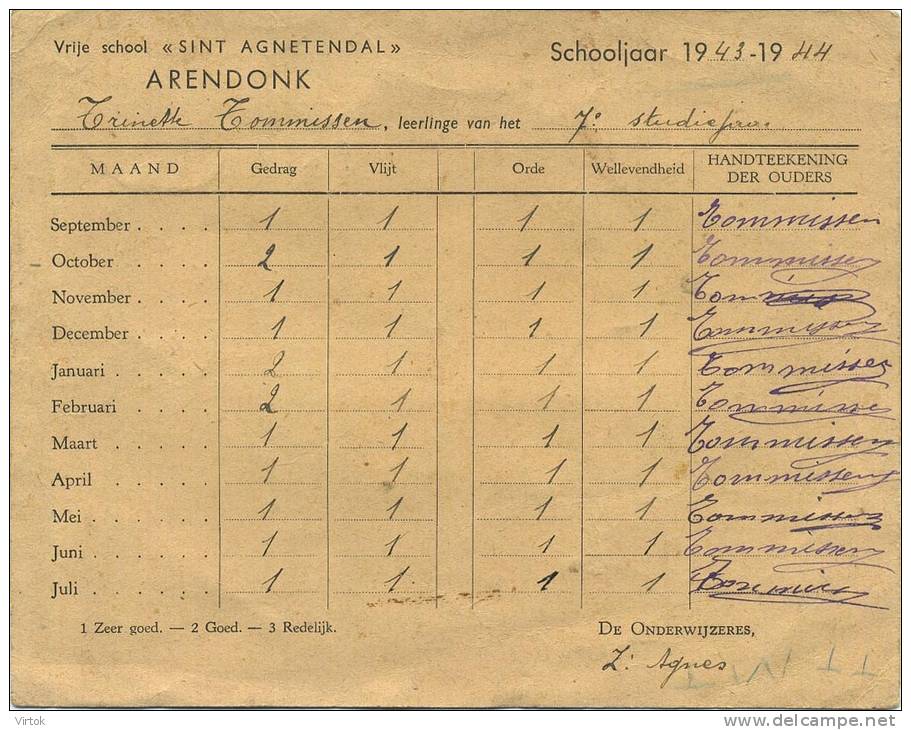 Vrije school « SINT AGNETENDAL »
Schooljaar 1943-1944
ARENDONK
Trinette Commissen, leerlinge van het 7e studiejaar
MAAND Gedrag Vlijt Orde Wellevendheid HANDTEEKENING DER OUDERS
September . . . . 1 1 1 1 Commissen
October . . . . 2 1 1 1 Commissen
November . . . . 1 1 1 1 Commissen
December . . . . 1 1 1 1 Commissen
Januari . . . . . 2 1 1 1 Commissen
Februari . . . . 2 1 1 1 Commissen
Maart . . . . . 1 1 1 1 Commissen
April . . . . . 1 1 1 1 Commissen
Mei . . . . . . 1 1 1 1 Commissen
Juni . . . . . . 1 1 1 1 Commissen
Juli . . . . . . 1 1 1 1 Commissen
1 Zeer goed. — 2 Goed. — 3 Redelijk.
DE ONDERWIJZERES,
Z. Agnes
Virtok
delcampe.net